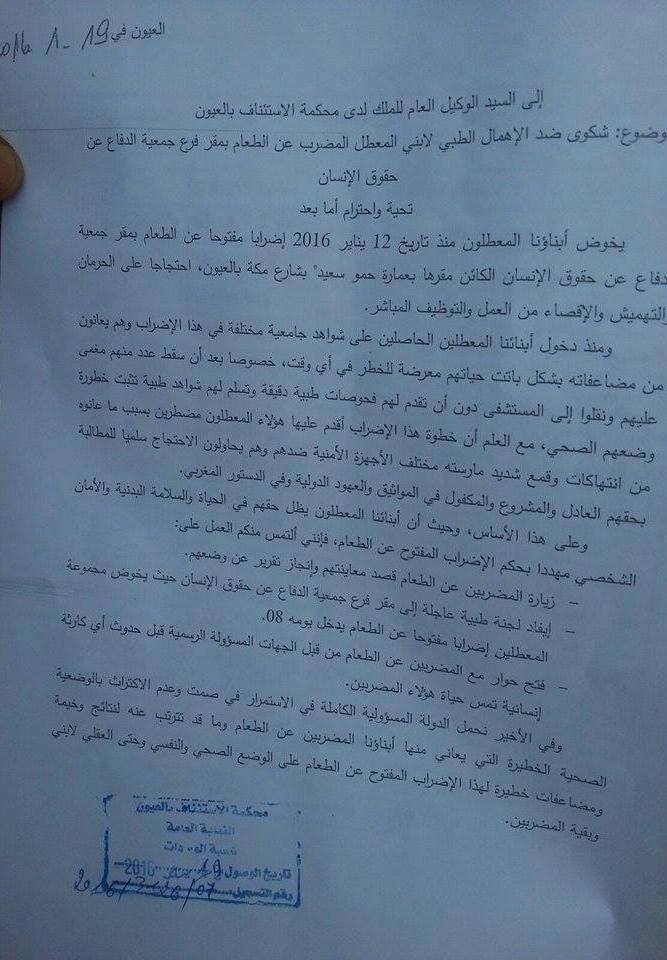 العيون في 19 - 1 - 2016
إلى السيد الوكيل العام للملك لدى محكمة الاستئناف بالعيون
وضوع: شكوى ضد الإهمال الطبي لابني المعطل المضرب عن الطعام بمقر فرع جمعية الدفاع عن
حقوق الإنسان
تحية واحترام أما بعد
يخوض أبناؤنا المعطلون منذ تاريخ 12 يناير 2016 إضرابا مفتوحا عن الطعام بمقر جمعية
دفاع عن حقوق الإنسان الكائن مقرها بعمارة حمو سعيد" بشارع مكة بالعيون، احتجاجا على الحرمان
التهميش والإقصاء من العمل والتوظيف المباشر.
ومنذ دخول أبنائنا المعطلين الحاصلين على شواهد جامعية مختلفة في هذا الإضراب وهم يعانون
من مضاعفاته بشكل باتت حياتهم معرضة للخطر في أي وقت، خصوصا بعد أن سقط عدد منهم مغمى
عليهم ونقلوا إلى المستشفى دون أن تقدم لهم فحوصات طبية دقيقة وتسلم لهم شواهد طبية تثبت خطورة
وضعهم الصحي، مع العلم أن خطوة هذا الإضراب أقدم عليها هؤلاء المعطلون مضطرين بسبب ما عانوه
من انتهاكات وقمع شديد مارسته مختلف الأجهزة الأمنية ضدهم وهم يحاولون الاحتجاج سلميا للمطالبة
بحقهم العادل والمشروع والمكفول في المواثيق والعهود الدولية وفي الدستور المغربي.
وعلى هذا الأساس، وحيث أن أبنائنا المعطلون يظل حقهم في الحياة والسلامة البدنية والأمان
الشخصي مهددا بحكم الإضراب المفتوح عن الطعام، فإنني ألتمس منكم العمل على:
– زيارة المضربين عن الطعام قصد معاينتهم وإنجاز تقرير عن وضعهم.
– إيفاد لجنة طبية عاجلة إلى مقر فرع جمعية الدفاع عن حقوق الإنسان حيث يخوض مجموعة
المعطلين إضرابا مفتوحا عن الطعام يدخل يومه 08.
– فتح حوار مع المضربين عن الطعام من قبل الجهات المسؤولة الرسمية قبل حدوث أي كارثة
إنسانية تمس حياة هؤلاء المضربين.
وفي الأخير نحمل الدولة المسؤولية الكاملة في الاستمرار في صمت وعدم الاكتراث بالوضعية
الصحية الخطيرة التي يعاني منها أبناؤنا المضربين عن الطعام وما قد تترتب عنه لنتائج وخيمة
ومضاعفات خطيرة لهذا الإضراب المفتوح عن الطعام على الوضع الصحي والنفسي وحتى العقلي لابني
وبقية المضربين.
محكمة الاستئناف بالعيون
النيابة العامة
تاريخ الوصول 19 2016
رقم التسجيل